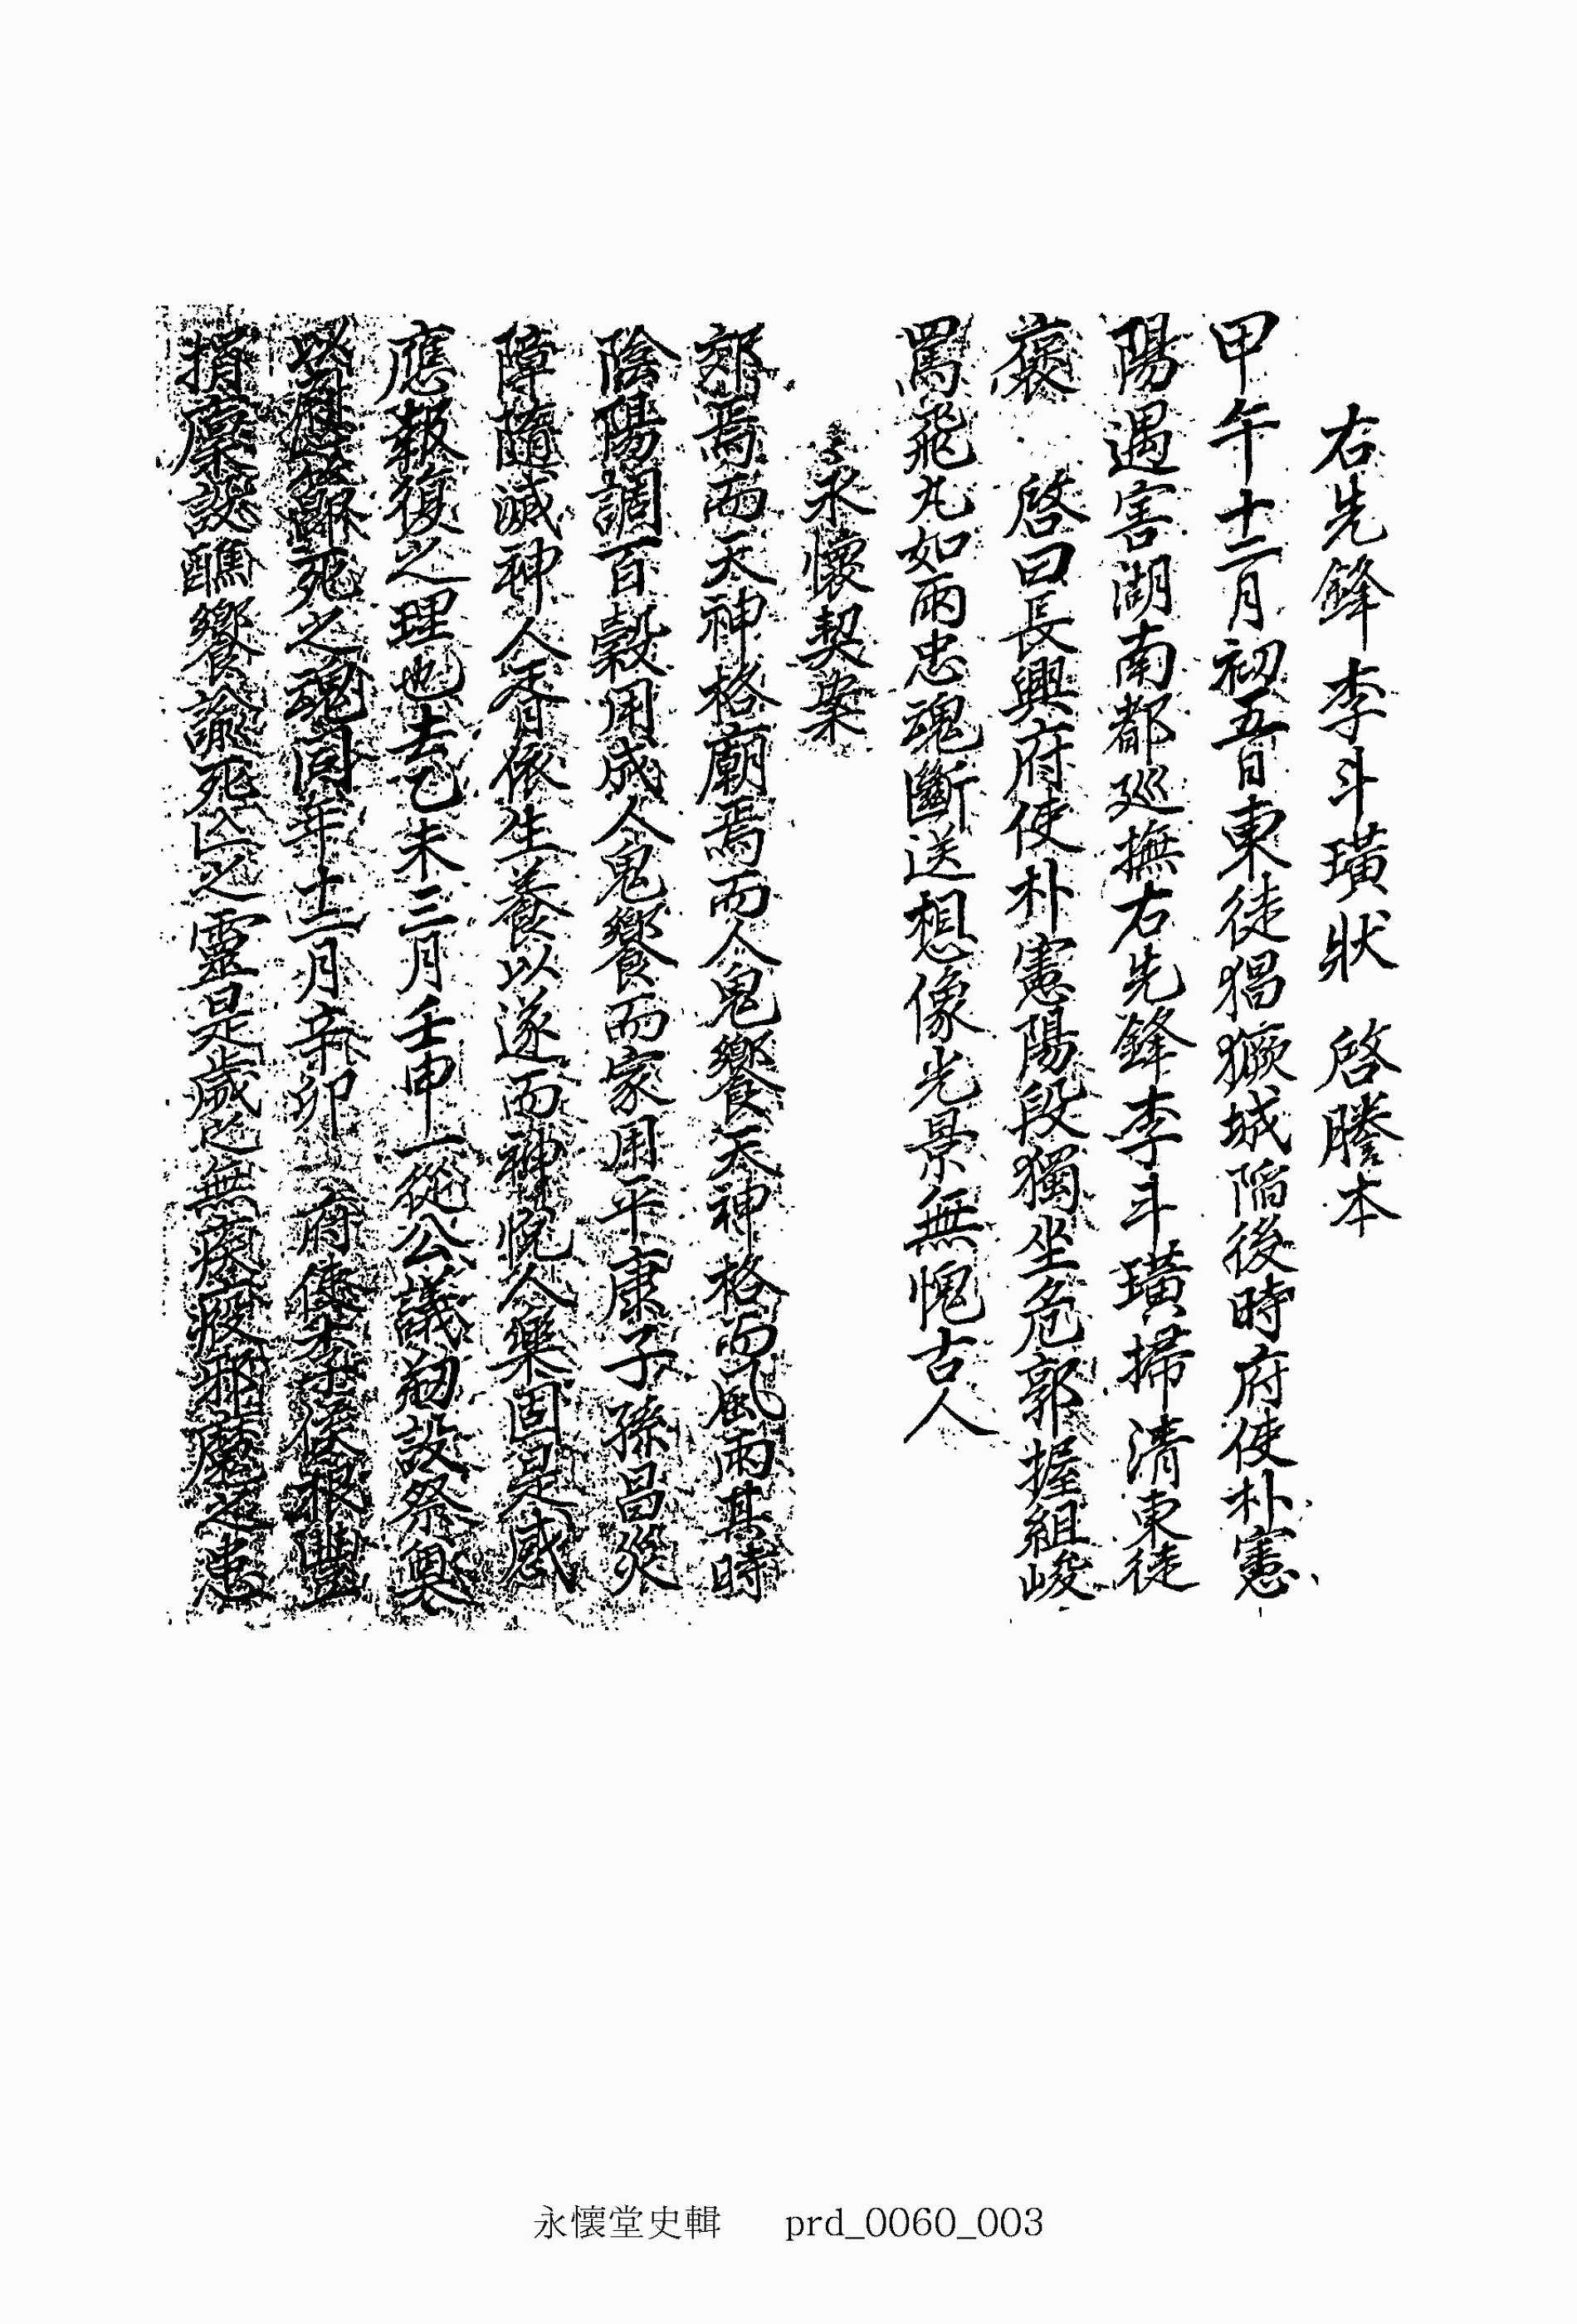 右先鋒李斗璜狀 啓謄本
甲午十二月初五日東徒猖獗城陷後時府使朴憲
陽遇害湖南都巡撫右先鋒李斗璜掃清東徒
褒 啓曰長興府使朴憲陽段獨坐危郭握組峻
罵飛丸如雨忠魂斷送想像光景無愧古人
永懷契案
郊焉而天神格廟焉而人鬼饗天神格而風雨其時
陰陽調百穀用成人鬼饗而家用平康子孫昌災
障隨滅神人胥依生養以遂而神悅人樂固是感
應報復之理也去乙未三月壬申一從公議刱設祭奠
以慰 死之魂同年十二月辛卯 府使李侯根豐
捐廩設醮饗諭死亡之靈是歲迄無瘓疫邪魔之患
永懷堂史輯 prd_0060_003